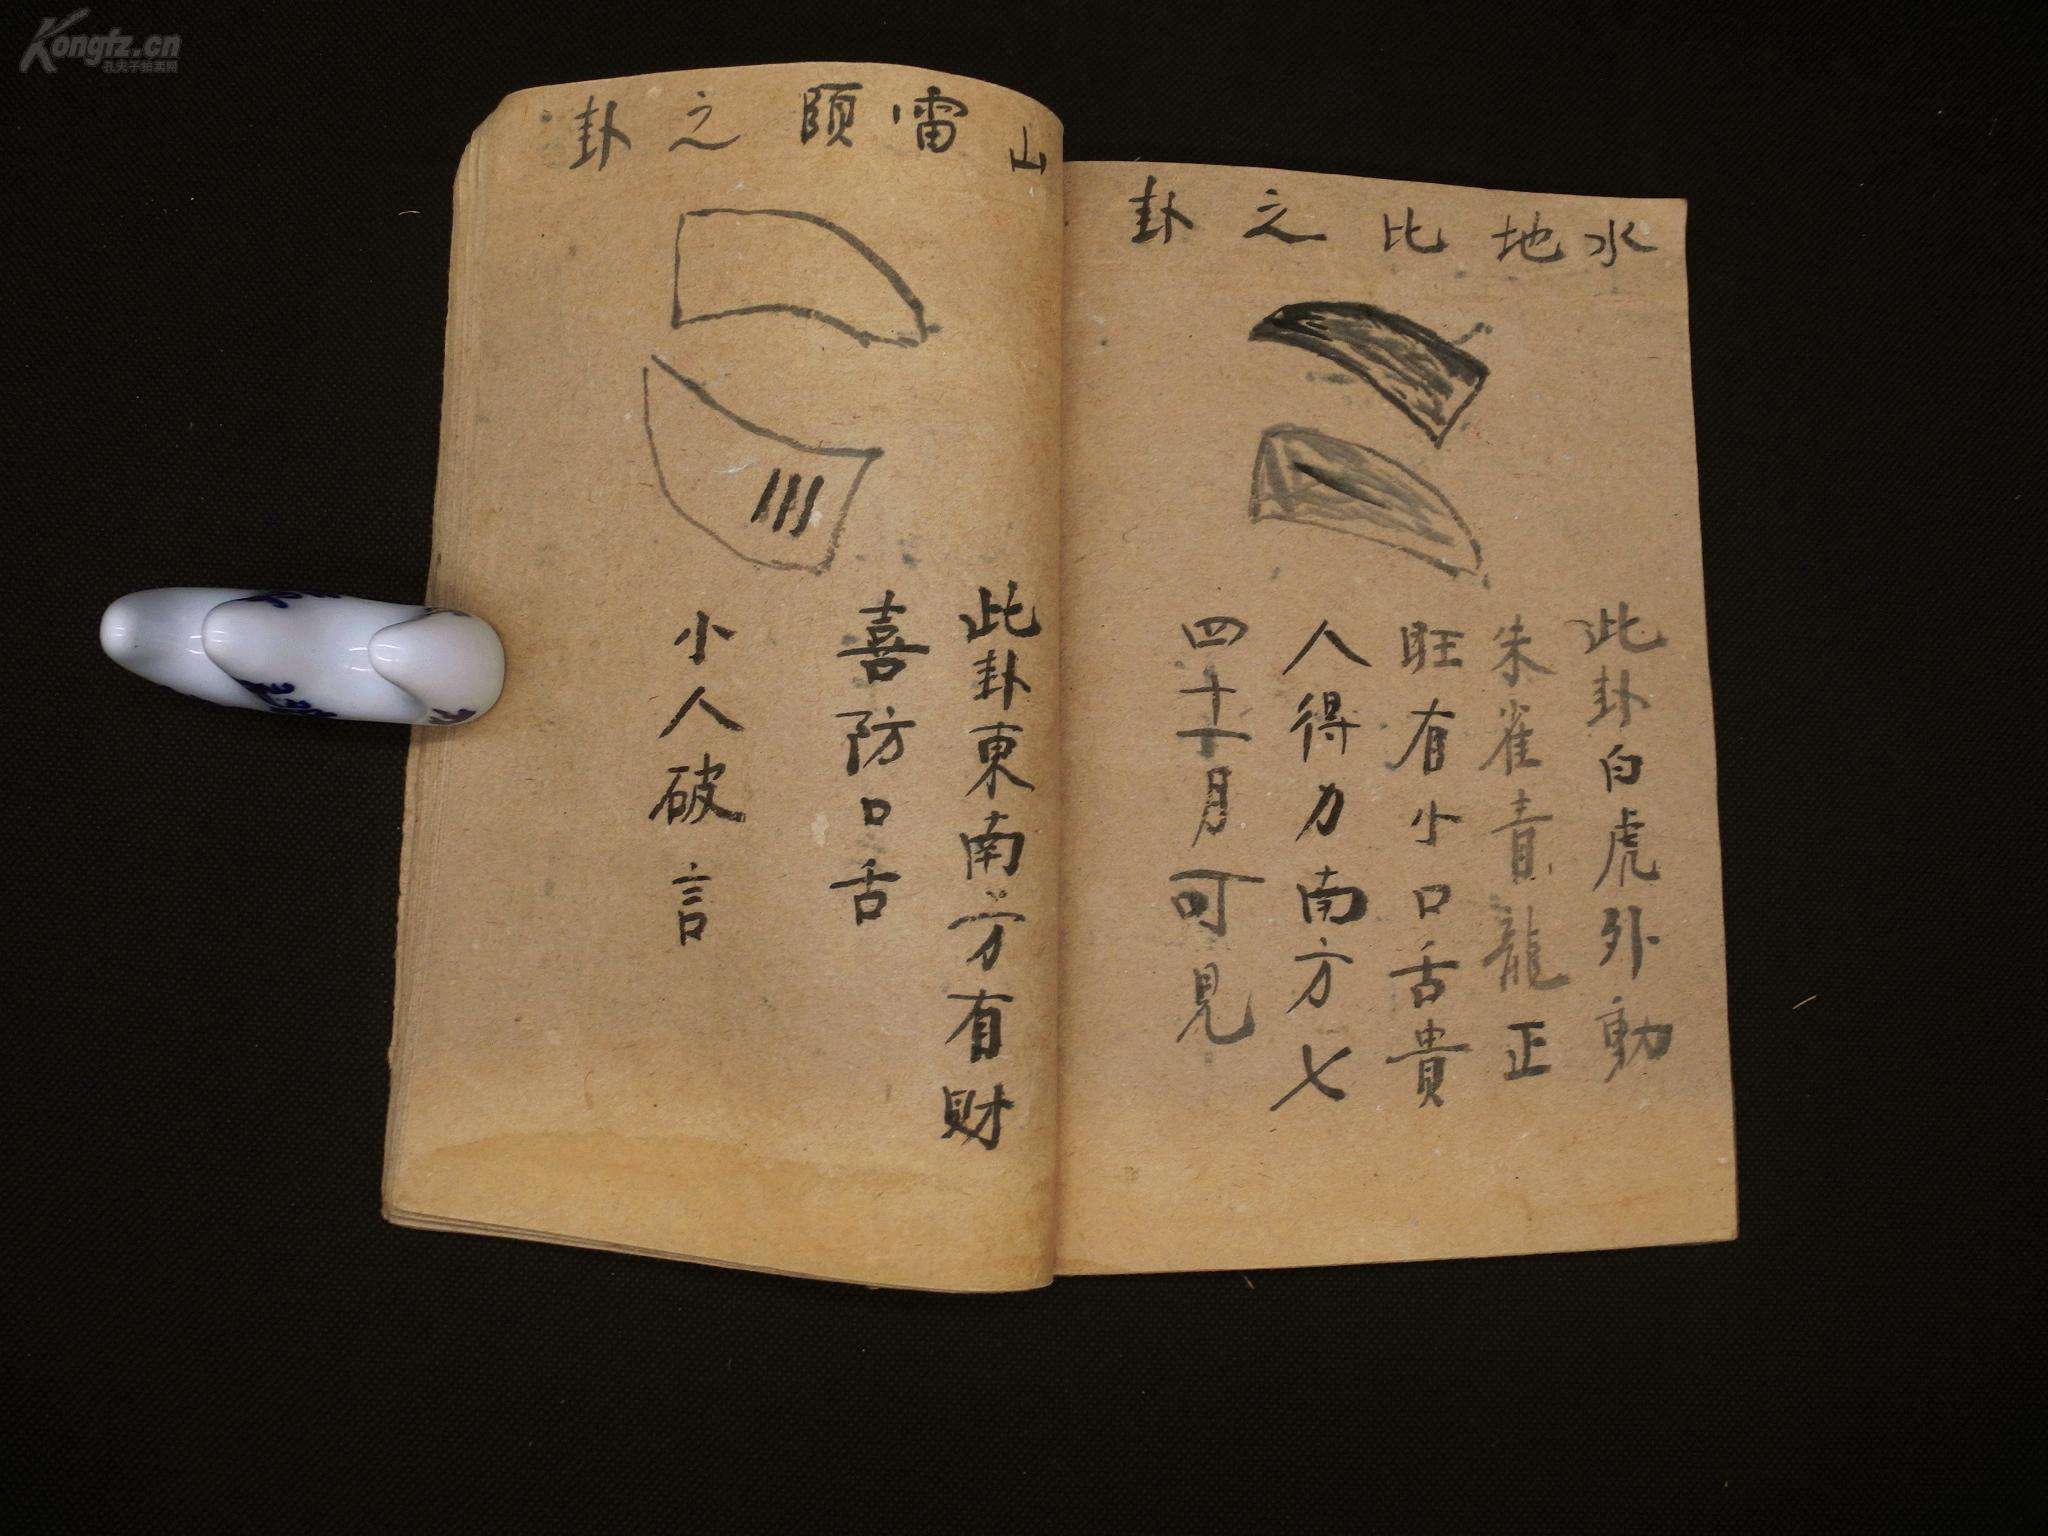 Kongfz.cn
孔夫子拍卖网
水地比之卦
此卦白虎外動
朱雀青龍正
旺有小口舌貴
人得力南方七
四十一月可見
山雷頤之卦
此卦東南方有財
喜防口舌
小人破言